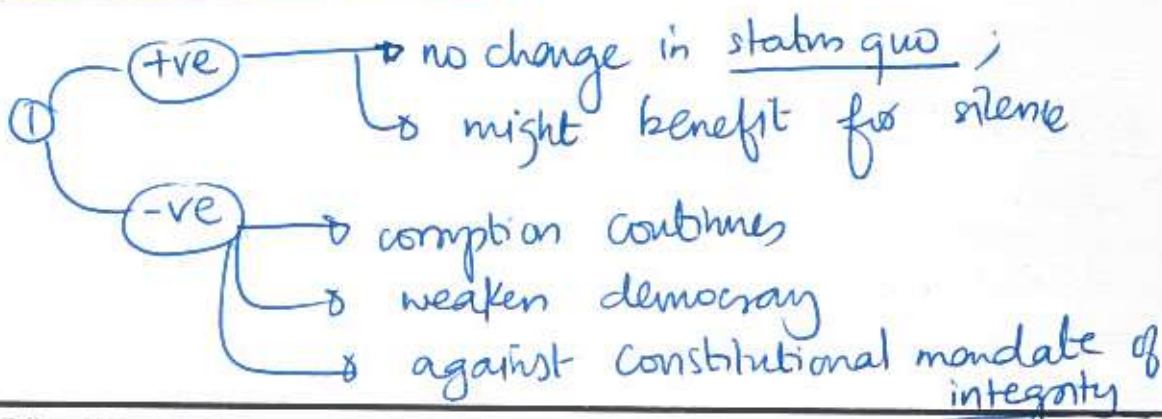 ①
+ve
no change in status quo ;
might benefit for silence
-ve
corruption continues
weaken democracy
against constitutional mandate of
integrity